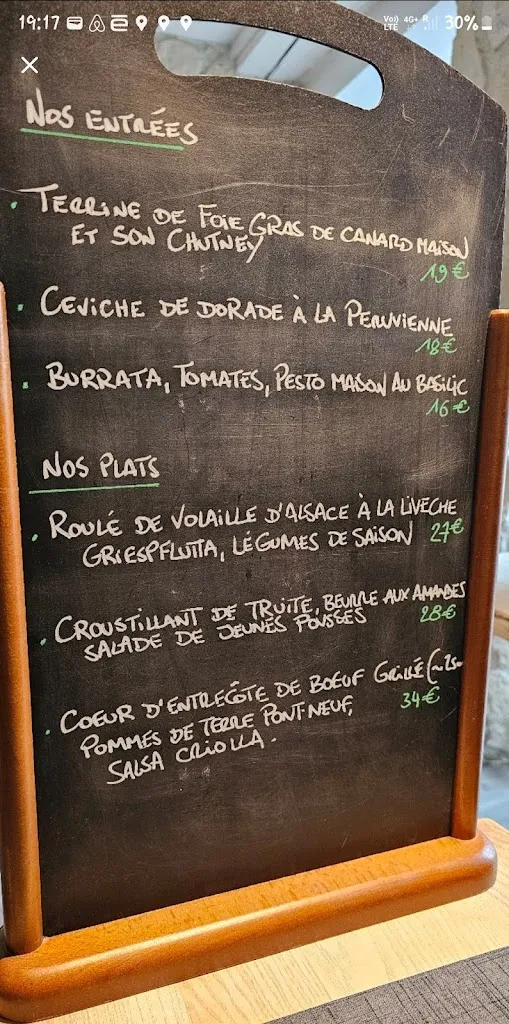 19:17
Vo)) LTE 4G+ R 30%
NOS ENTRÉES
TERRINE DE FOIE GRAS DE CANARD MAISON
ET SON CHUTNEY
19€
CEVICHE DE DORADE À LA PERUVIENNE
18€
BURRATA, TOMATES, PESTO MAISON AU BASILIC
16€
NOS PLATS
ROULÉ DE VOLAILLE D'ALSACE À LA LIVECHE
GRIESPFLUTTA, LÉGUMES DE SAISON 27€
CROUSTILLANT DE TRUITE, BEURRE AUX AMANDES
SALADE DE JEUNES POUSSES 28€
COEUR D'ENTRECÔTE DE BOEUF GRILLÉ (~25
34€
POMMES DE TERRE PONT-NEUF,
SALSA CRIOLLA.